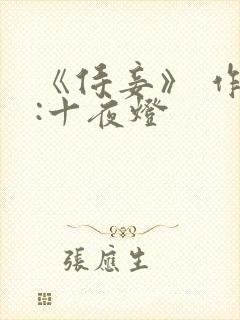 《侍妾》 作
:十夜燈
張應生